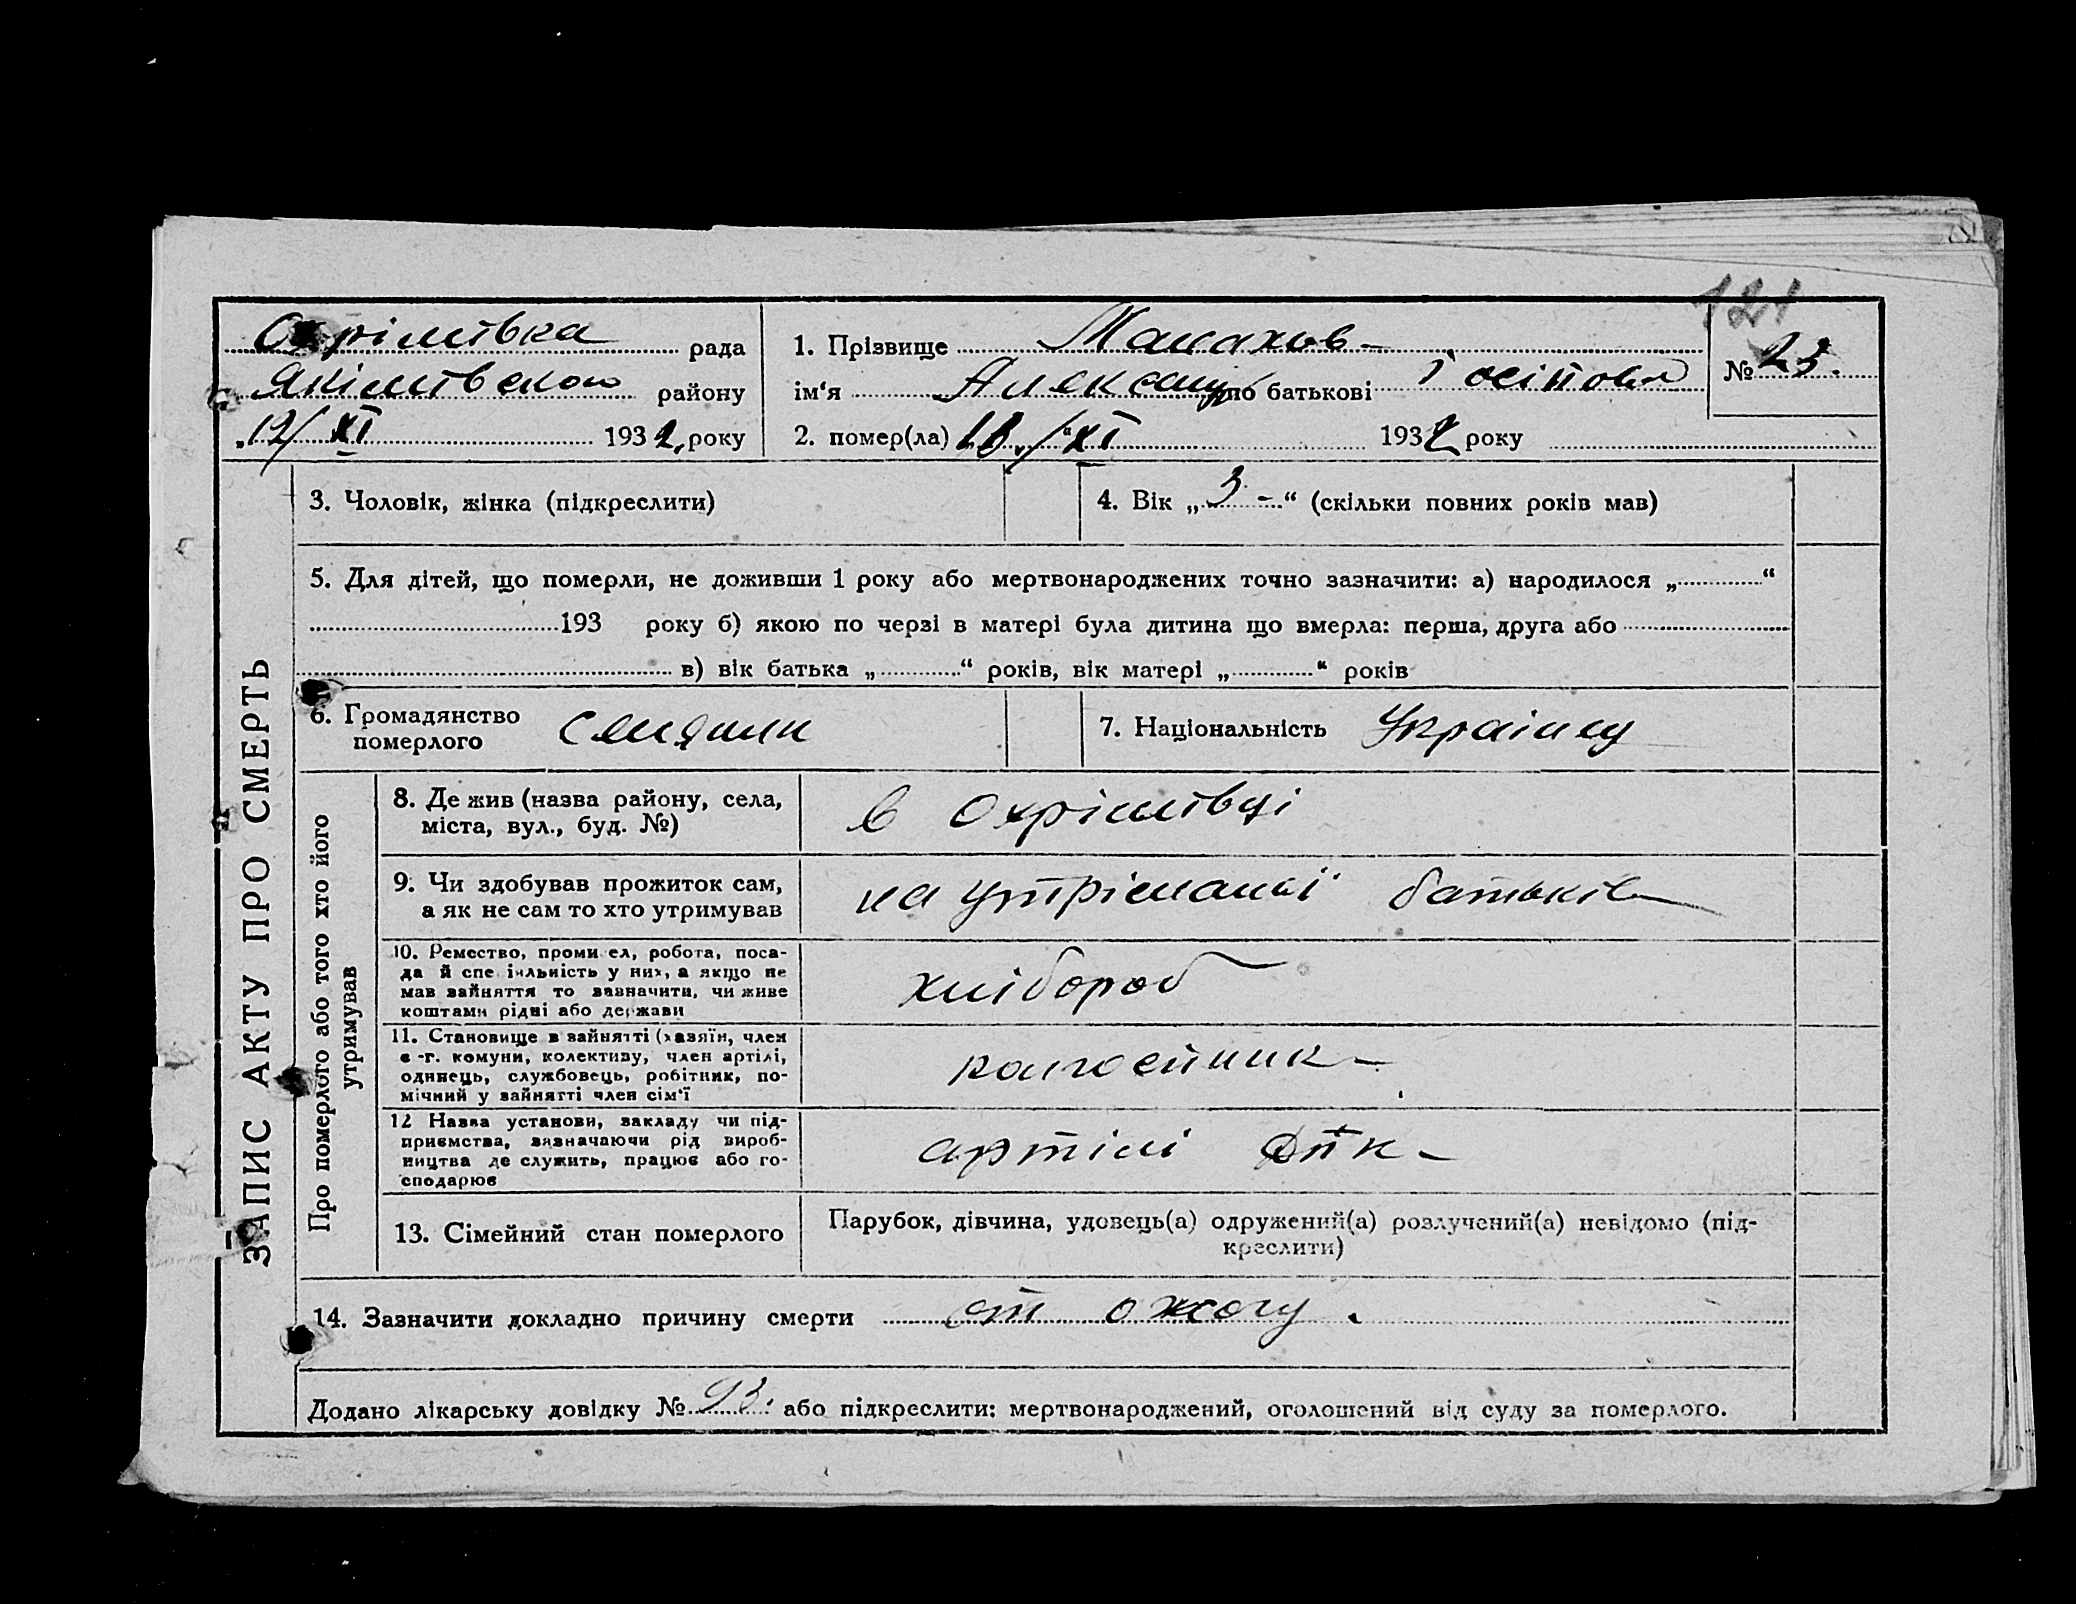 121
Охрімівка рада
Якімівского району
„12/XI 1932 року
1. Прізвище Манахов
ім‘я Александр по батькові Йосіпов
2. помер(ла) /XI 1932 року
№ 23.
ЗАПИС АКТУ ПРО СМЕРТЬ
3. Чоловік, жінка (підкреслити)
4. Вік „3-“ (скільки повних років мав)
5. Для дітей, що померли, не доживши 1 року або мертвонароджених точно зазначити: а) народилося „ “
193 року б) якою по черзі в матері була дитина що вмерла: перша, друга або
в) вік батька „ “ років, вік матері „ “ років
6. Громадянство
померлого
селянин
7. Національність Украінец
Про померлого або того хто його
утримував
8. Де жив (назва району, села,
міста, вул., буд. №)
в Охрімівці
9. Чи здобував прожиток сам,
а як не сам то хто утримував
на утріманні батьків
10. Ремество, промисел, робота, поса-
да й спеціяльність у них, а якщо не
мав зайняття то зазначити, чи живе
коштами рідні або держави
хлібороб
11. Становище в зайнятті (хазяїн, член
с.-г. комуни, колективу, член артілі,
одинець, службовець, робітник, по-
мічний у зайнятті член сім‘ї
колгоспник
12 Назва установи, закладу чи під-
приємства, зазначаючи рід вироб-
ництва де служить, працює або го-
сподарює
артілі
13. Сімейний стан померлого
Парубок, дівчина, удовець(а) одружений(а) розлучений(а) невідомо (під-
креслити)
14. Зазначити докладно причину смерти от ожогу.
Додано лікарську довідку № 93. або підкреслити: мертвонароджений, оголошений від суду за померлого.